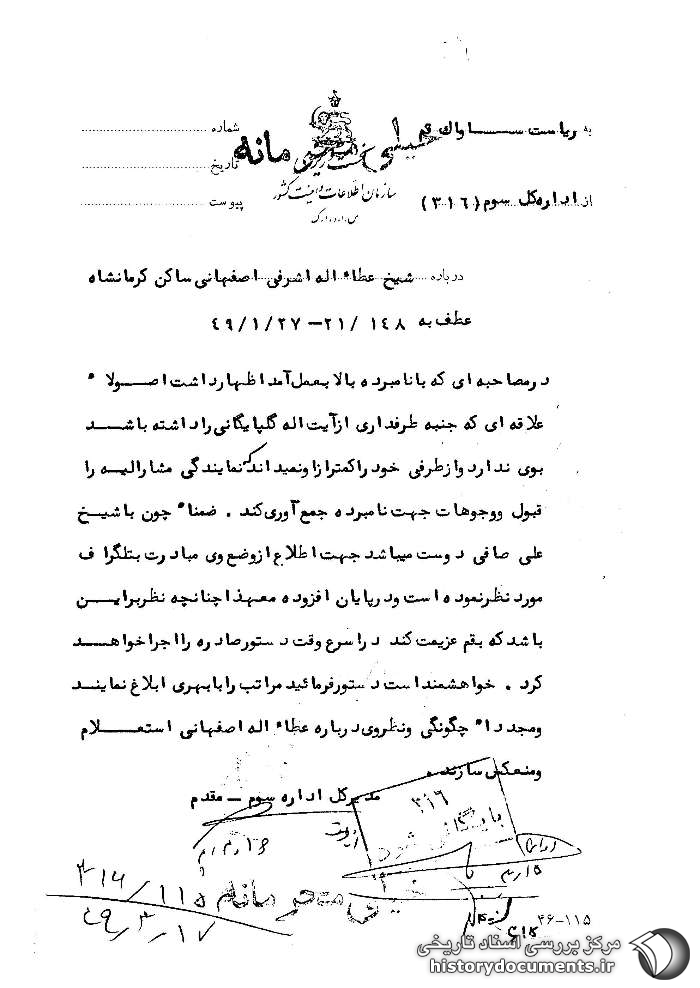 به ریاست ســــــا واک قم
شماره
خیلی محرمانه
نخست وزیری
تاریخ
سازمان اطلاعات و امنیت کشور
از اداره کل سوم (۳۱۶)
پیوست
س.ا.و.ا.ک
درباره شیخ عطاء اله اشرفی اصفهانی ساکن کرمانشاه
عطف به ۱۴۸ /۲۱-۴۹/۱/۲۷
در مصاحبه ای که با نامبرده بالا بعمل آمد اظهار داشت اصــولا ً
علاقه ای که جنبه طرفداری از آیت اله گلپایگانی را داشته باشــد
بوی ندارد و از طرفی خود را کمتر از او نمیداند که نمایندگی مشارالیه را
قبول و وجوهات جهت نامبرده جمع آوری کند . ضمنا ً چون با شیخ
علی صافی دوست میباشد جهت اطلاع از وضع وی مبادرت بتلگراف
مورد نظر نموده است و در پایان افزوده معهذا چنانچه نظر براین
باشد که بقم عزیمت کند در اسرع وقت دستور صادره را اجرا خواهــد
کرد . خواهشمند است دستور فرمائید مراتب را با بهری ابلاغ نمایند
و مجددا ً چگونگی و نظروی درباره عطاء اله اصفهانی استعــلام
و منعکس سازند .
مدیر کل اداره سوم ــ مقدم
۳۱۶
بایگانی شود
۳۱۶/۱۱۵
خیلی محرمانه
۴۹/۳/۱۷
۴۶-۱۱۵
مرکز بررسی اسناد تاریخی
historydocuments.ir